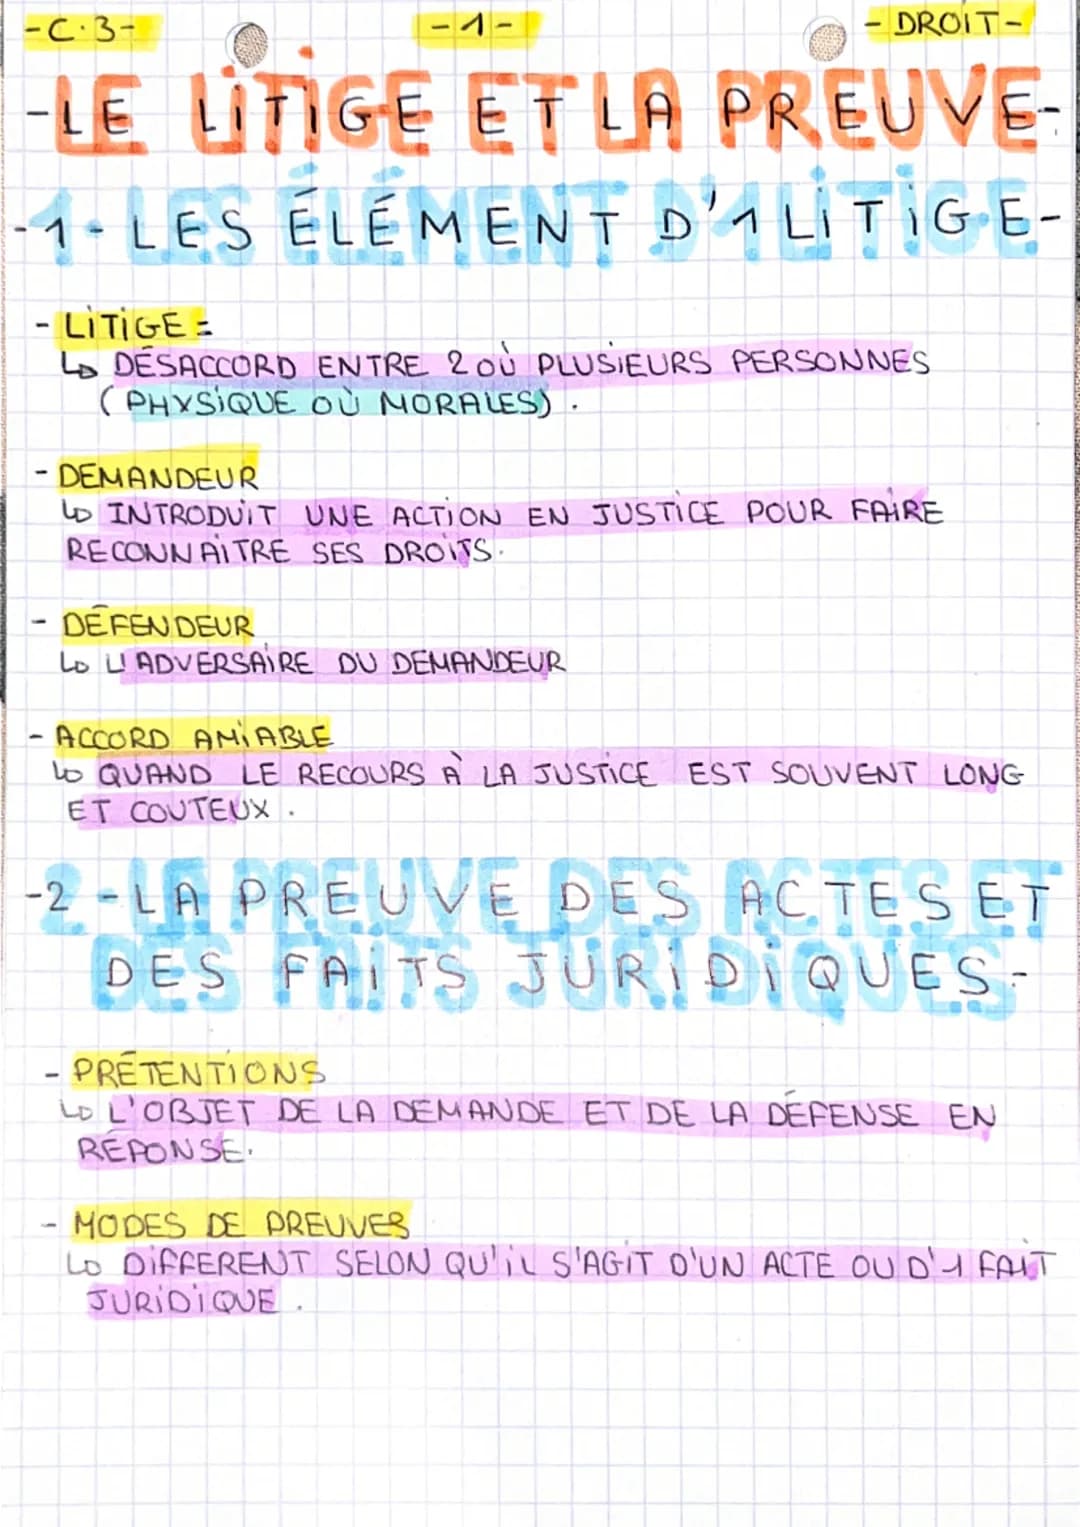 -C.3-
-1-
- DROIT-
-LE LITIGE ET LA PREUVE-
-1- LES ÉLÉMENT D'1 LITIGE-
- LITIGE =
↳ DÉSACCORD ENTRE 2 OÙ PLUSIEURS PERSONNES
(PHYSIQUE OÙ MORALES).
- DEMANDEUR
↳ INTRODUIT UNE ACTION EN JUSTICE POUR FAIRE
RECONNAITRE SES DROITS.
- DÉFENDEUR
↳ L'ADVERSAIRE DU DEMANDEUR
- ACCORD AMIABLE
↳ QUAND LE RECOURS À LA JUSTICE EST SOUVENT LONG
ET COUTEUX.
-2-LA PREUVE DES ACTES ET
DES FAITS JURIDIQUES-
- PRÉTENTIONS
↳ L'OBJET DE LA DEMANDE ET DE LA DÉFENSE EN
RÉPONSE.
- MODES DE PREUVES
↳ DIFFERENT SELON QU'IL S'AGIT D'UN ACTE OU D'1 FAIT
JURIDIQUE.